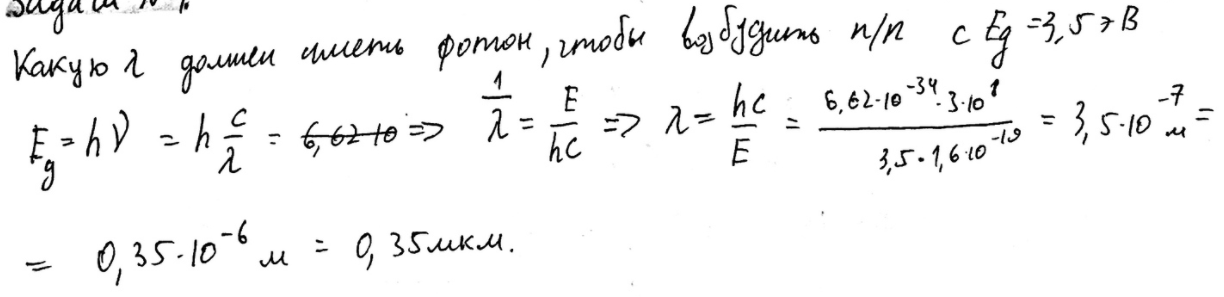 Задача №1.
Какую λ должен иметь фотон, чтобы возбудить п/п с Eg = 3,5 эВ
Eg = hν = h c/λ = 6,62·10 => 1/λ = E/hc => λ = hc/E = 6,62·10^-34·3·10^8 / 3,5·1,6·10^-19 = 3,5·10^-7 м =
= 0,35·10^-6 м = 0,35 мкм.